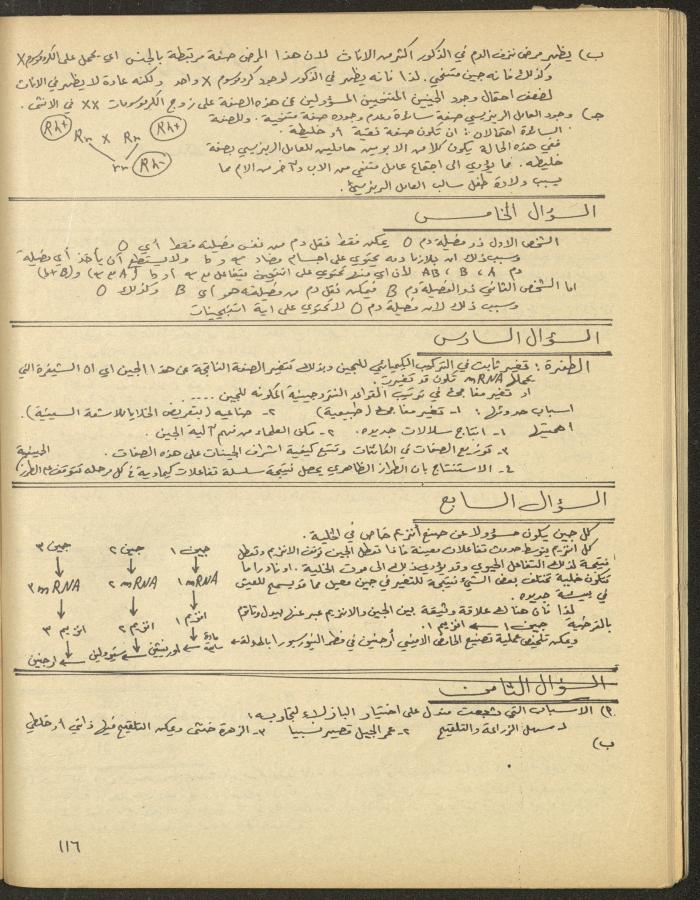 ب) يظهر مرض نزف الدم في الذكور اكثر من الاناث لان هذا المرض صفة مرتبطة بالجنس اي يحمل على الكروموسوم X
وكذلك فانه جين متنحي. لذا فانه يظهر في الذكور لوجود كروموسوم X واحد ولكنه عادة لا يظهر في الاناث
لضعف احتمال وجود الجينين المتنحيين المسؤولين عن هذه الصفة على زوج الكروموسومات XX في الانثى.
جـ) وجود العامل الريزيسي صفة سائدة وعدم وجوده صفة متنحية. وللصفة
السائدة احتمالان: ان تكون صفة نقية او خليطة.
ففي هذه الحالة يكون كلا من الابوين حاملين للعامل الريزيسي بصفة
خليطه. مما يؤدي الى اجتماع عامل متنحي من الاب وآخر من الام مما
يسبب ولادة طفل سالب العامل الريزيسي.
Rh+ Rr x Rr Rh+
rr Rh-
السؤال الخامس
الشخص الاول ذو فصيلة دم O يمكن فقط نقل دم من نفس فصيلته فقط اي O
وسبب ذلك ان بلازما دمه يحتوي على اجسام مضاده a و b ولا يستطيع أن يأخذ أي فصيلة
دم A ، B ، AB لأن اي منها تحتوي على انتيجين يتفاعل مع a او b
اما الشخص الثاني ذو الفصيلة دم B فيمكن نقل دم من فصيلته هو أي B وكذلك O
وسبب ذلك لان فصيلة دم O لا تحتوي على اية انتيجينات
السؤال السادس
الطفرة: تغير ثابت في التركيب الكيميائي للجين وبذلك تتغير الصفة الناتجة عن هذا الجين اي ان الشيفرة التي
يحملها mRNA تكون قد تغيرت.
او تغير مفاجئ في ترتيب القواعد النيتروجينية المكونه للجين ....
اسباب حدوثها: ١- تغير مفاجئ (طبيعية) ٢- صناعيه (بتعريض الخلايا للاشعة السينية).
اهميتها ١- انتاج سلالات جديده. ٢- مكن العلماء من فهم آلية الجين.
٣- توزيع الصفات في الكائنات وتتبع كيفية اشراف الجينات على هذه الصفات.
٤- الاستنتاج بان الطراز الظاهري يحصل نتيجة سلسلة تفاعلات كيماوية في كل مرحله تتوقف على الطرز الجينية
السؤال السابع
كل جين يكون مسؤولا عن صنع أنزيم خاص في الخلية.
كل انزيم يتوسط حدوث تفاعلات معينة فاذا تعطل الجين توقف الانزيم وتعطل
نتيجة لذلك التفاعل الحيوي وقد يؤدي ذلك الى موت الخلية. او نادرا ما
تتكون خلية تختلف بعض الشيء نتيجة للتغير في جين معين مما قد يسمح للعيش
في بيئة جديده.
لذا فان هنالك علاقة وثيقة بين الجين والانزيم عبر عنها بيدل وتاتم
بالفرضية جين ١ ← انزيم ١.
ويمكن تلخيص عملية تصنيع الحامض الاميني أرجنين في فطر النيوروسبورا بالمعادلة
جين ١ جين ٢ جين ٣
mRNA ١ mRNA ٢ mRNA ٣
انزيم ١ انزيم ٢ انزيم ٣
مادة سابقة ← اورنيثين ← سترولين ← ارجنين
السؤال الثامن
أ) الاسباب التي شجعت مندل على اختيار البازلاء لتجاربه:
١- سهل الزراعة والتلقيح ٢- عمر الجيل قصير نسبيا ٣- الزهرة خنثى ويمكن التلقيح فيها ذاتي او خلطي
ب)
١١٦